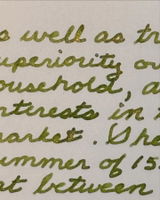 s well as tr
uperiority ov
ousehold, a
nterests in
arket. She
ummer of 15
at between